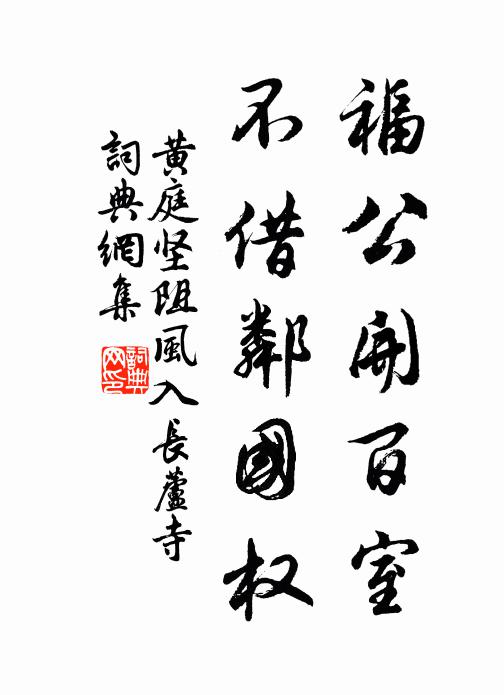 福公開百室
不借鄰國权
黄庭坚阻風入長蘆寺
詞典網集
詞典网印